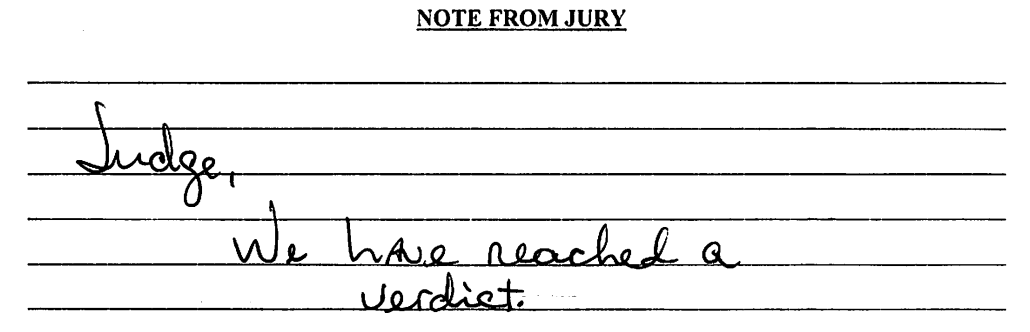 NOTE FROM JURY
Judge,
We have reached a
verdict.